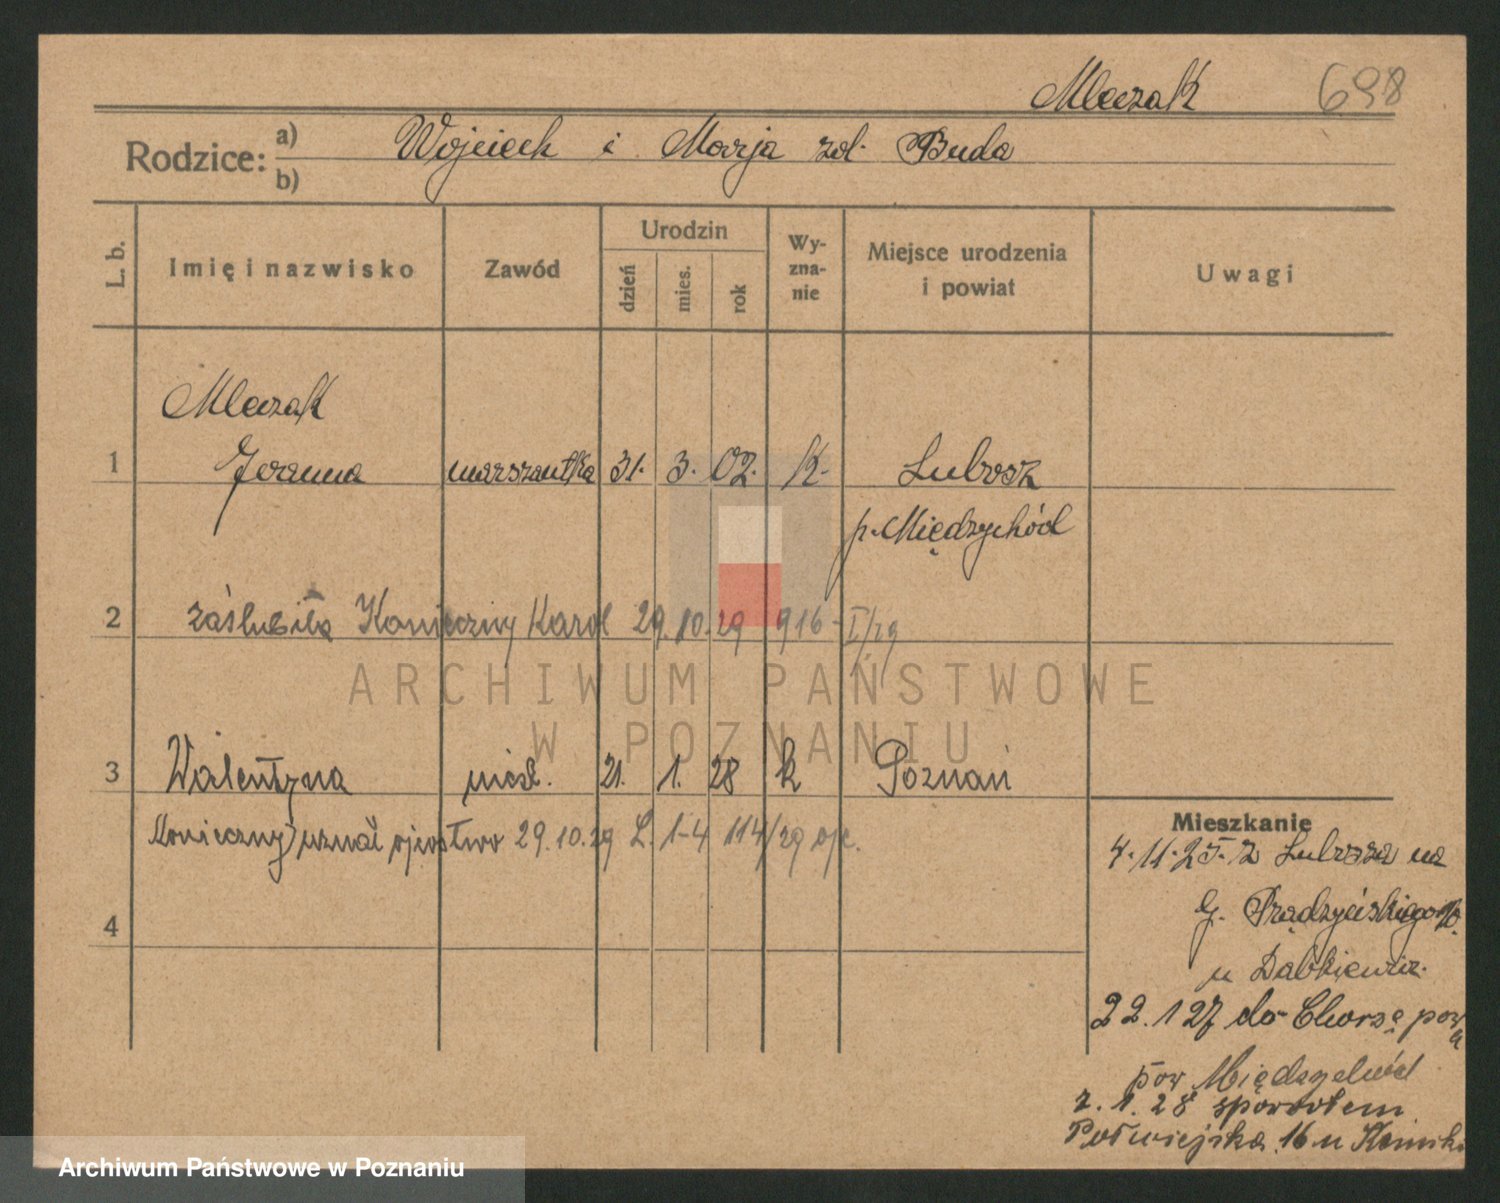 Mleczak 698
Rodzice: a) b) Wojciech i Marja zd. Buda
L. b. Imię i nazwisko Zawód Urodzin dzień mies. rok Wy-zna-nie Miejsce urodzenia i powiat Uwagi
Mleczak
1 Joanna 31. 3. 02. K. Lubosz
p. Międzychód
2 zaślubiła Konieczny Karol 29.10.29 916-I/29
ARCHIWUM PAŃSTWOWE
W POZNANIU
3 Walentyna niez. 21. 1. 28 k Poznań
Konieczny uznał ojcostwo 29.10.29 L. 1-4 114/29
4
Mieszkanie
4.11.25. z Lubosza na
G. Prądzyńskiego
u
22.1 27 do
pow. Międzychód
2.1.28 spowrotem
16 u
Archiwum Państwowe w Poznaniu